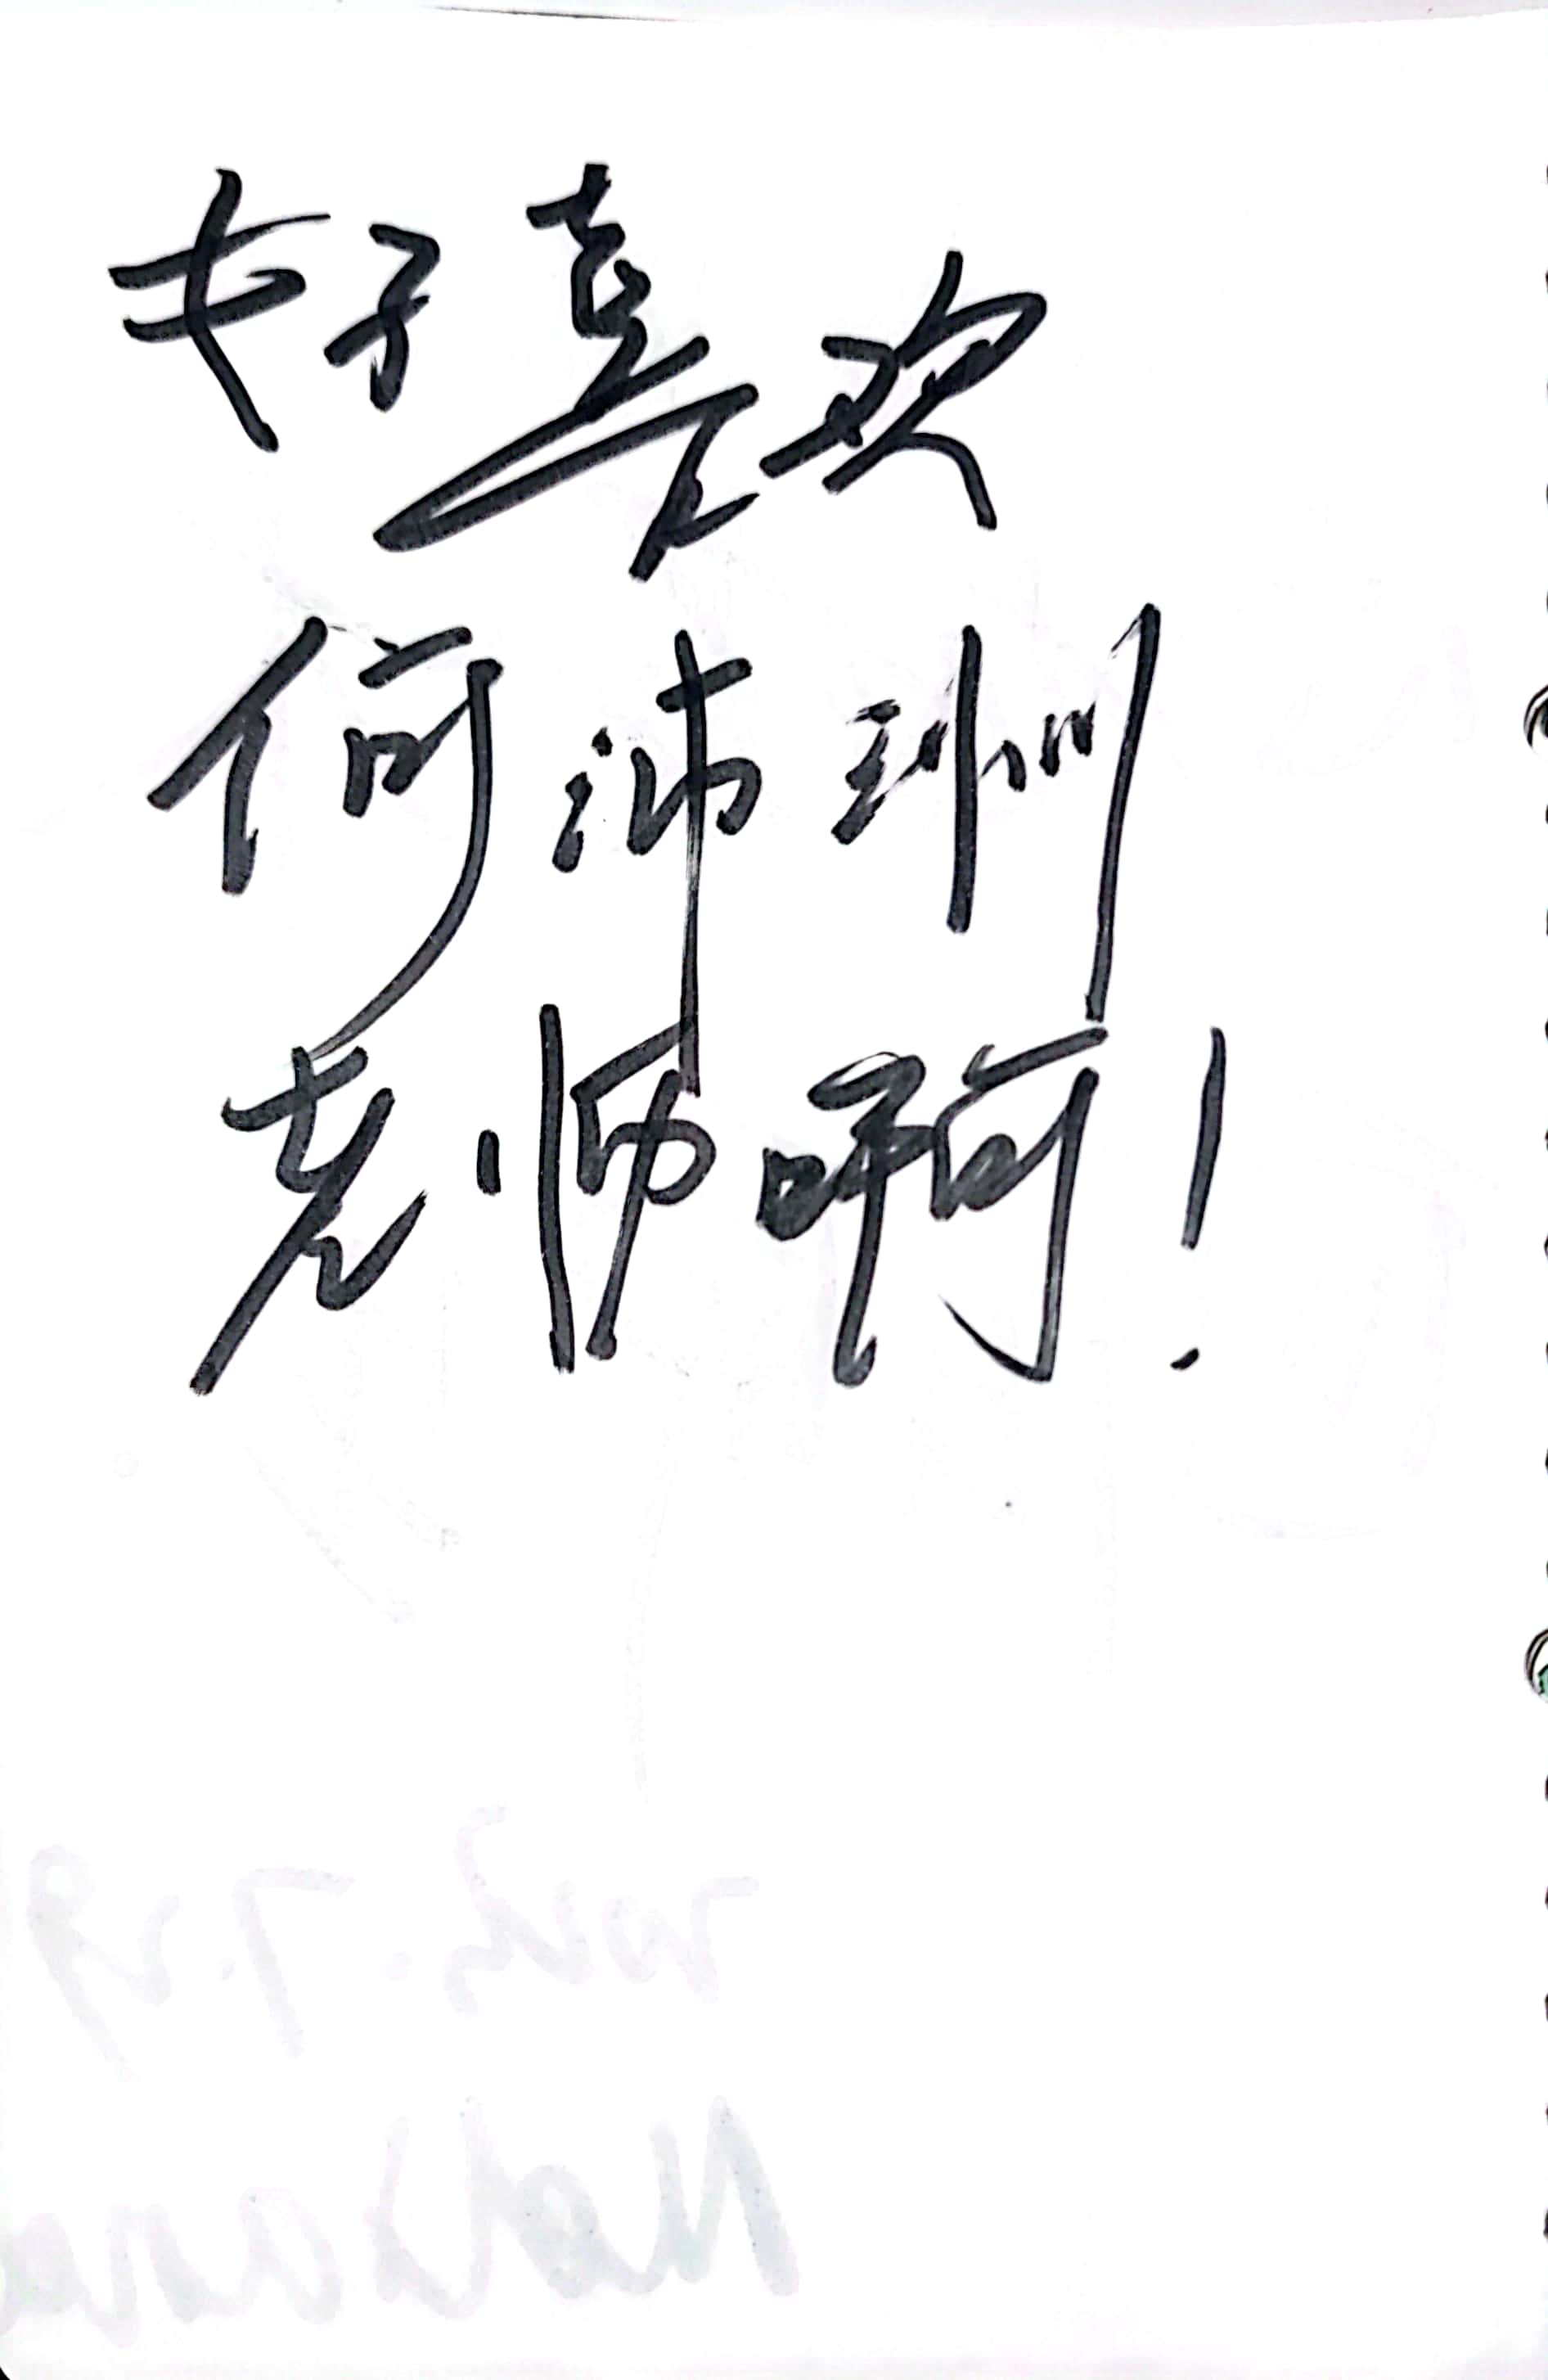 好喜欢
何沛珈
老师啊!